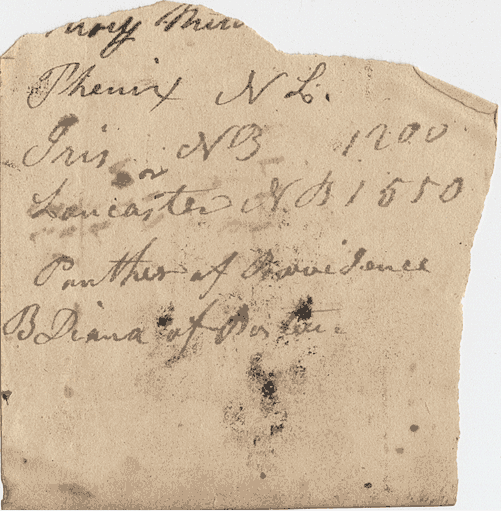 Phenix N L.
Iris NB 1200
Lancaster N.B 1550
Panther of Providence
B Diana of Boston